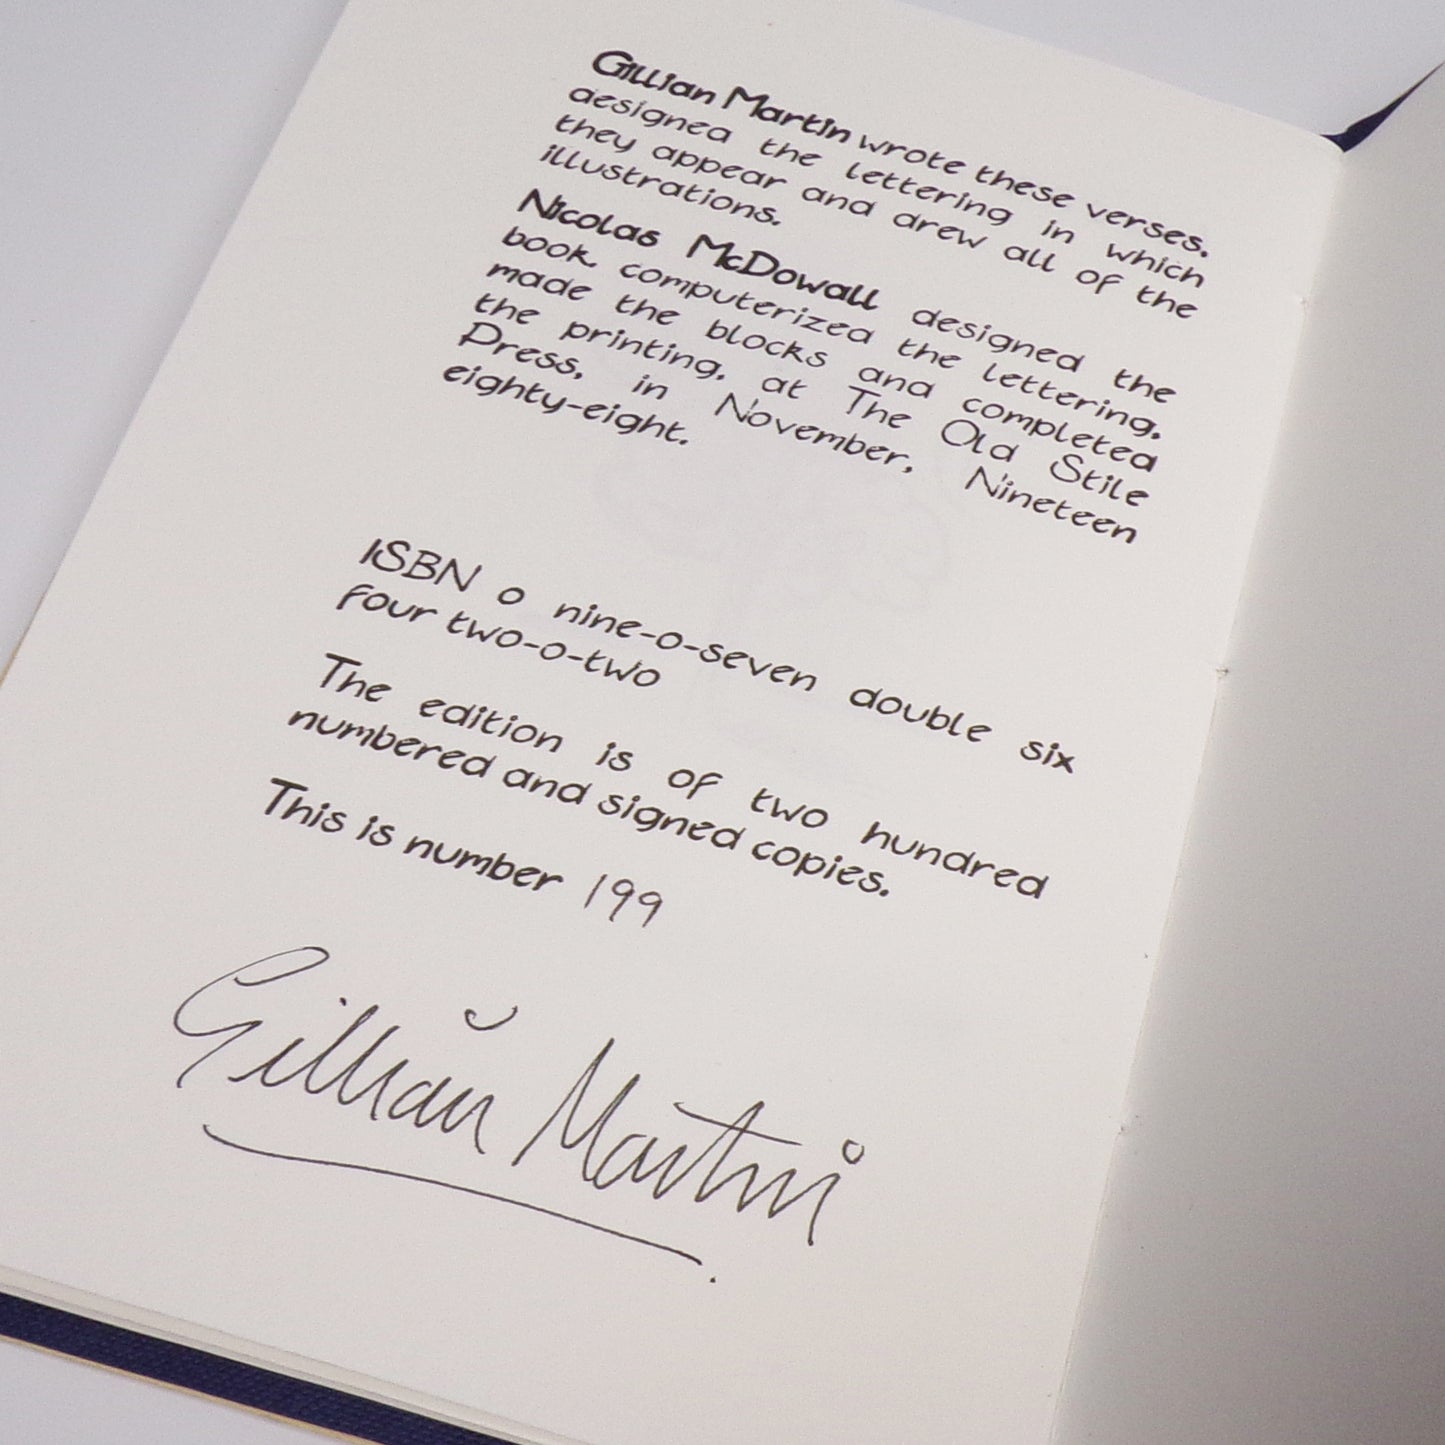 Gillian Martin wrote these verses,
designed the lettering in which
they appear and drew all of the
illustrations.
Nicolas McDowall designed the
book, computerized the lettering,
made the blocks and completed
the printing, at The Old Stile
Press, in November, Nineteen
eighty-eight.
ISBN 0 nine-o-seven double six
four two-o-two
The edition is of two hundred
numbered and signed copies.
This is number 199
Gillian Martin